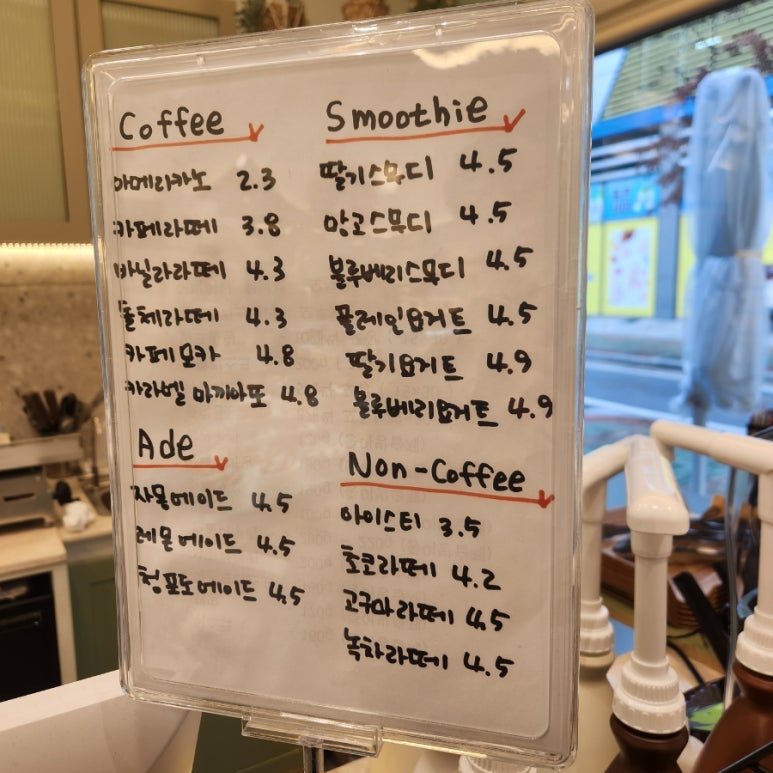 Coffee
아메리카노 2.3
카페라떼 3.8
바닐라라떼 4.3
돌체라떼 4.3
카페모카 4.8
카라멜 마끼아또 4.8
Ade
자몽에이드 4.5
레몬에이드 4.5
청포도에이드 4.5
Smoothie
딸기스무디 4.5
망고스무디 4.5
블루베리스무디 4.5
플레인요거트 4.5
딸기요거트 4.9
블루베리요거트 4.9
Non-Coffee
아이스티 3.5
초코라떼 4.2
고구마라떼 4.5
녹차라떼 4.5